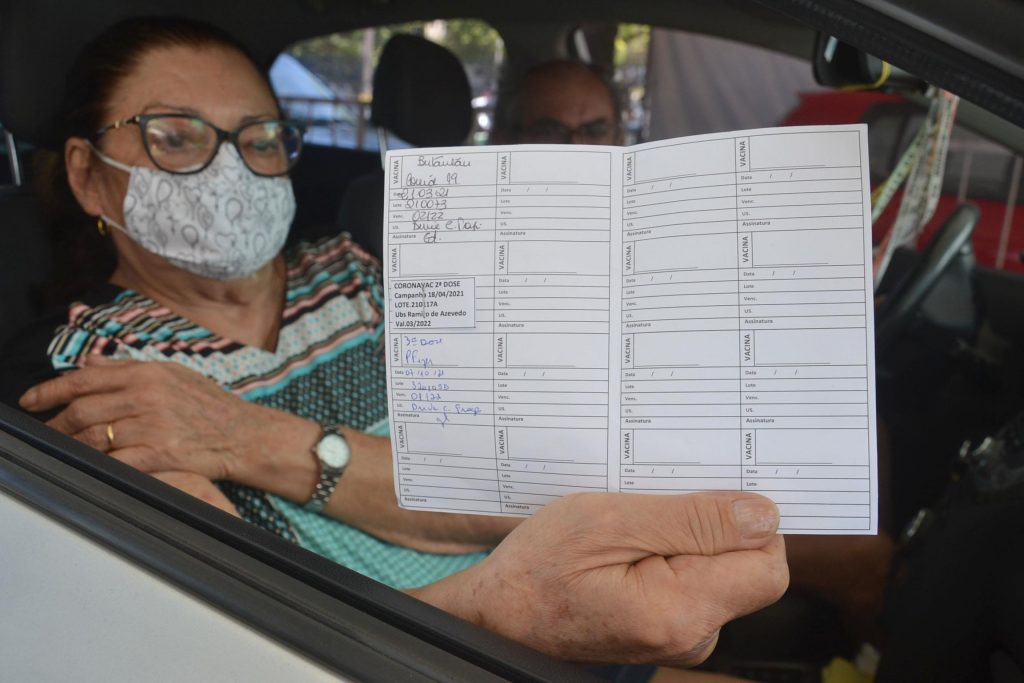 VACINA
Butantan
Covid 19
Data 21/03/21
Lote 210073
Venc. 02/22
US.
Assinatura
VACINA
CORONAVAC 2ª DOSE
Campanha 18/04/2021
LOTE.210117A
Ubs Ramiro de Azevedo
Val.03/2022
VACINA
3ª Dose
Pfizer
Data 07/10/21
Lote
Venc. 01/22
US.
Assinatura
VACINA
Data / /
Lote
Venc.
US.
Assinatura
VACINA
Data / /
Lote
Venc.
US.
Assinatura
VACINA
Data / /
Lote
Venc.
US.
Assinatura
VACINA
Data / /
Lote
Venc.
US.
Assinatura
VACINA
Data / /
Lote
Venc.
US.
Assinatura
VACINA
Data / /
Lote
Venc.
US.
Assinatura
VACINA
Data / /
Lote
Venc.
US.
Assinatura
VACINA
Data / /
Lote
Venc.
US.
Assinatura
VACINA
Data / /
Lote
VACINA
Data / /
Lote
Venc.
US.
Assinatura
VACINA
Data / /
Lote
Venc.
US.
Assinatura
VACINA
Data / /
Lote
Venc.
US.
Assinatura
VACINA
Data / /
Lote